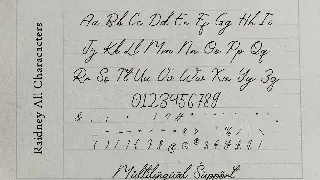 Raidney All Characters
Aa Bb Cc Dd Ee Ff Gg Hh Ii
Jj Kk Ll Mm Nn Oo Pp Qq
Rr Ss Tt Uu Vv Ww Xx Yy Zz
0123456789
Multilingual Support